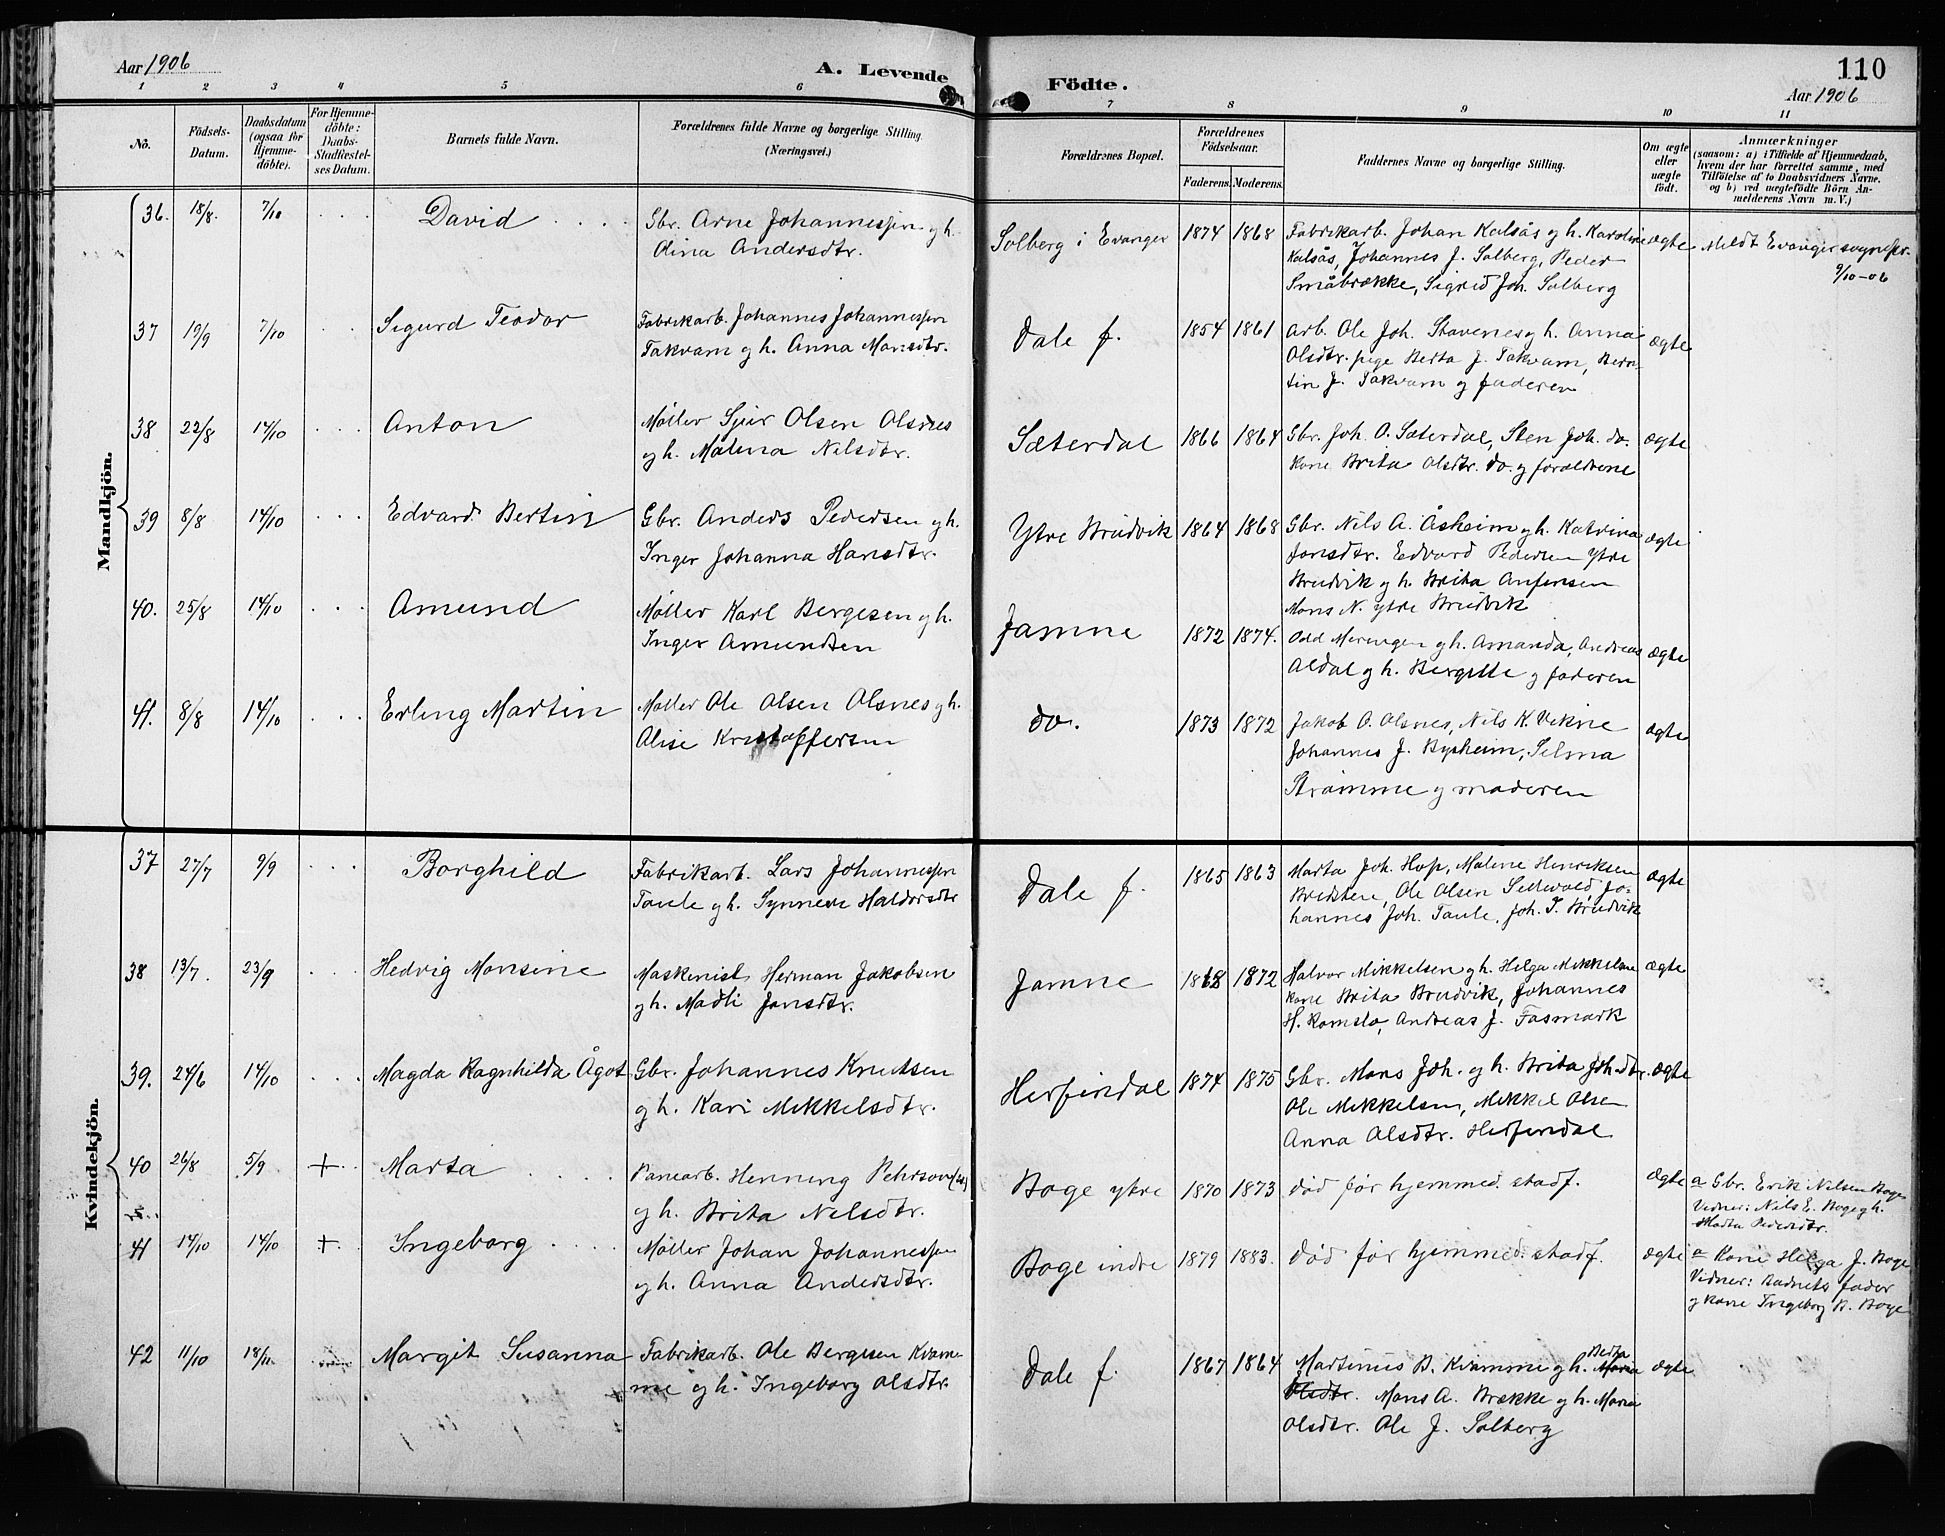 Aar 1906
A. Levende Födte.
110
Aar 1906
1 2 3 4 5 6 7 8 9 10 11
No.
Födsels-
Datum.
Daabsdatum
(ogsaa for
Hjemme-
döbte).
For Hjemme-
döbte:
Daabs-
Stadfæstel-
ses Datum.
Barnets fulde Navn.
Forældrenes fulde Navne og borgerlige Stilling
(Næringsvei.)
Forældrenes Bopæl.
Forældrenes
Födselsaar.
Faderens.
Moderens.
Faddernes Navne og borgerlige Stilling.
Om ægte
eller
uægte
födt.
Anmærkninger
(saasom: a) i Tilfælde af Hjemmedaab,
hvem der har forrettet samme, med
Tilföielse af to Daabsvidners Navne.
og b) ved uægtefödte Börn An-
melderens Navn m.V.)
Mandkjön.
36. 18/8. 7/10 David Gbr. Arne Johannessen og h.
Olina Andersdtr.
Solberg i Evanger 1874 1868 Fabrikarb. Johan Kalsås og h. Karoline
Kalsås, Johannes J. Solberg, Peder
Småbrække, Sigrid Joh. Solberg
ægte Meldt Evanger sognepr.
9/10-06
37 19/9 7/10 Sigurd Teodor Fabrikarb. Johannes Johannessen
Takvam og h. Anna Monsdtr.
Dale f. 1854 1861 Arb. Ole Joh. Stavenes og h. Anna
Olsdtr. pige Berta J. Takvam, Bern-
tin J. Takvam og faderen
ægte
38 22/8 14/10 Anton Møller Sjur Olsen Olsnes
og h. Malina Nilsdtr.
Sæterdal 1866 1864 Gbr. Joh. O. Sæterdal, Sten Joh. do.
Kone Brita Olsdtr. do. og forældrene
ægte
39 8/8 14/10 Edvard Bertin Gbr. Anders Pedersen og h.
Inger Johanna Hansdtr.
Ytre Brudvik 1864 1868 Gbr. Nils A. Åsheim og h. Katrina
Jonsdtr. Edvard Pedersen Ytre
Brudvik og h. Brita Anfensen
Mons N. ytre Brudvik
ægte
40. 25/8 14/10 Amund Møller Karl Bergesen og h.
Inger Amundsen
Jamne 1872 1874. Odd og h. Amanda, Andreas
Aldal og h. Bergitte og faderen
ægte
41. 8/8 14/10 Erling Martin Møller Ole Olsen Olsnes og h.
Alise Kristoffersen
do. 1873 1872 Jakob O. Olsnes, Nils K. Vikne
Johannes J. Bysheim, Selma
Strømme og moderen
ægte
Kvindekjön.
37 27/7 9/9 Borghild Fabrikarb. Lars Johannessen
Taule og h. Synneve Haldorsdtr
Dale f. 1865 1863 Marta Joh. Hop, Malene Henriksen
Ole Olsen Jo-
hannes Joh. Taule, Joh. T. Brudvik
ægte
38 13/7. 23/9 Hedvig Monsine Maskinist Herman Jakobsen
og h. Madli Jonsdtr.
Jamne 1868 1872 Halvor Mikkelsen og h. Helga Mikkelsen
Kone Brita Brudvik, Johannes
H. Romslo, Andreas J. Fosmark
ægte
39. 24/6 14/10 Magda Ragnhilda Ågot Gbr. Johannes Knutsen
og h. Kari Mikkelsdtr.
Herfindal 1874 1875 Gbr. Mons Joh. og h. Brita Joh.dtr.
Ole Mikkelsen, Mikkel Olsen
Anna Olsdtr. Herfindal
ægte
40 26/8 5/9 + Marta Banearb. Henning Pehrson
og h. Brita Nilsdtr.
Boge ytre 1870 1873 død før hjemmed. stadf.
ægte a Gbr. Erik Nilsen Boge
Vidner: Nils E. Boge og h.
Marta Pedersdtr.
41 14/10 14/10 + Ingeborg Møller Johan Johannessen
og h. Anna Andersdtr.
Boge indre 1879 1883. død før hjemmed. stadf.
ægte a Kone Helga J. Boge
Vidner: Barnets fader
og kone Ingeborg B. Boge
42 11/10 18/11. Margit Susanna Fabrikarb. Ole Bergesen Kvam-
me og h. Ingeborg Olsdtr.
Dale f. 1867 1864 Martinus B. Kvamme og h. Berta Maria
Olsdtr. Mons A. Brække og h. Maria
Olsdtr. Ole J. Solberg
ægte